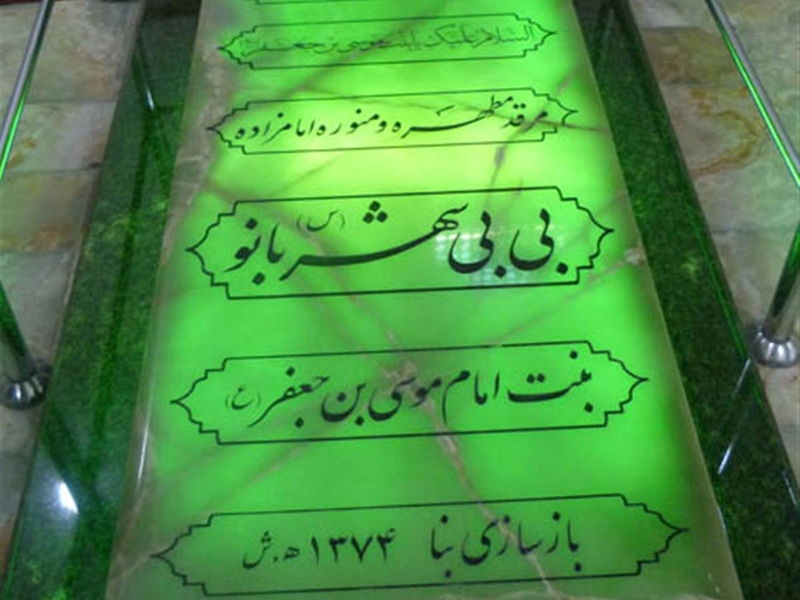 السلام علیک یا بنت موسی بن جعفر
مرقد مطهره و منوره امامزاده
بی بی شهربانو (س)
بنت امام موسی بن جعفر (ع)
بازسازی بنا ۱۳۷۴ ه.ش